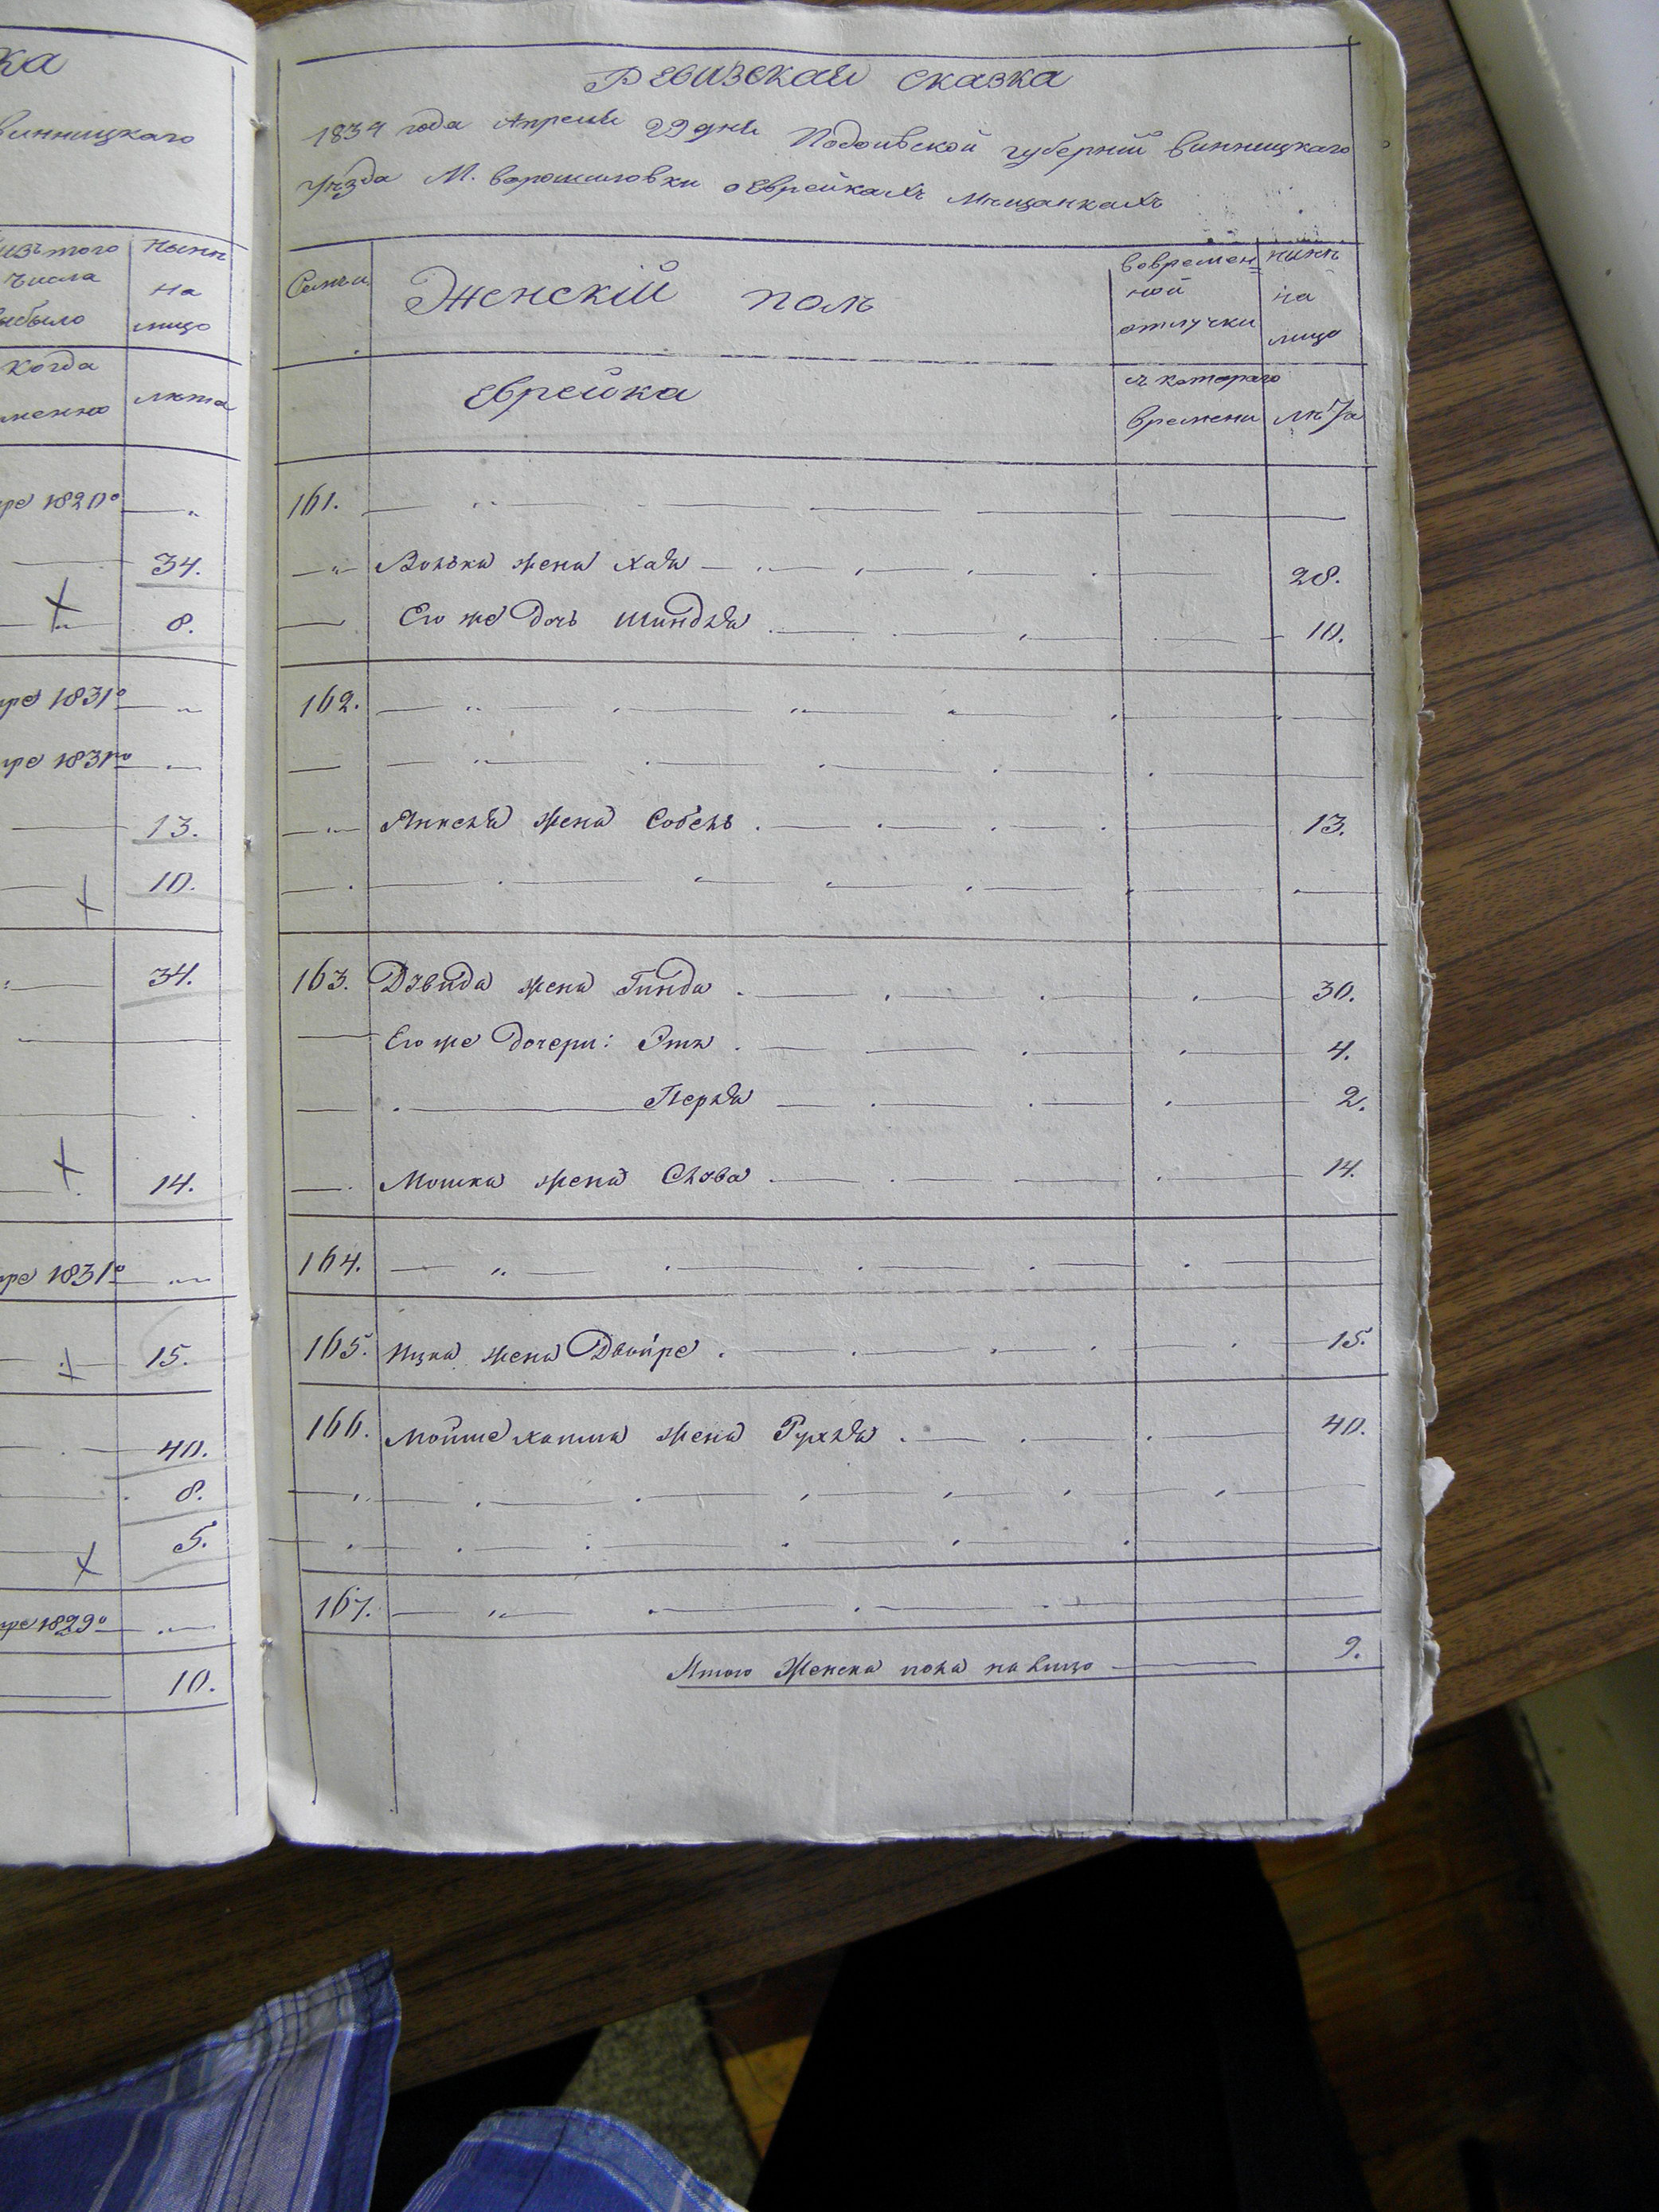 ка
винницкаго
изъ того
числа
выбыло
нынѣ
на
лицо
когда
лѣта
1820º
34.
8.
1831º
1831го
13.
10.
34.
14.
1831º
15.
40.
8.
5.
1829º
10.
Ревизская сказка
1834 года Апреля 29 дня Подольской губерніи винницкаго
уѣзда М. ворошиловки о Еврейкахъ мѣщанкахъ
Семьи
Женскій полъ
вовремен=
ной
отлучки
нынѣ
на
лицо
Еврейка
съ котораго
времени
лѣта
161.
Волька жена Хая 28.
Его же Дочь Шиндля 10.
162.
Янкеля жена Собель 13.
163. Дзвида жена Гинда 30.
Его же Дочери: Этя 4.
Перля 2.
Мошка жена Слова 14.
164.
165. Ицка жена Двойре 15.
166. Мойше хаима жена Рухля 40.
167.
Итого Женска пола на лицо 9.